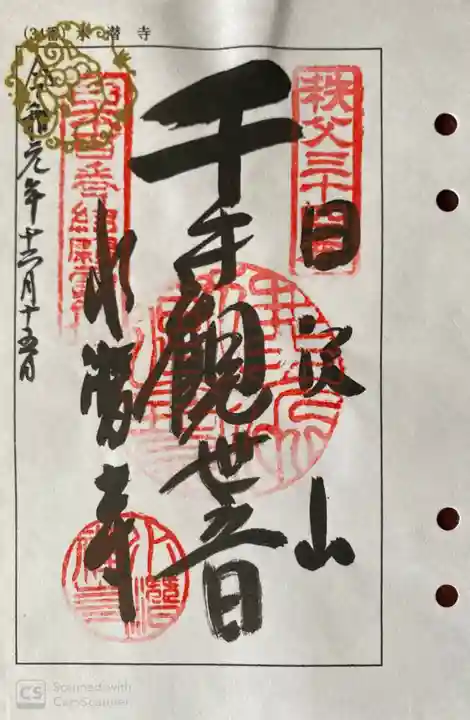 (34番) 水潜寺
秩父三十四番
日沢山
千手観世音
日本百番結願寺
水潜寺
令和元年十二月十五日
CS Scanned with
CamScanner